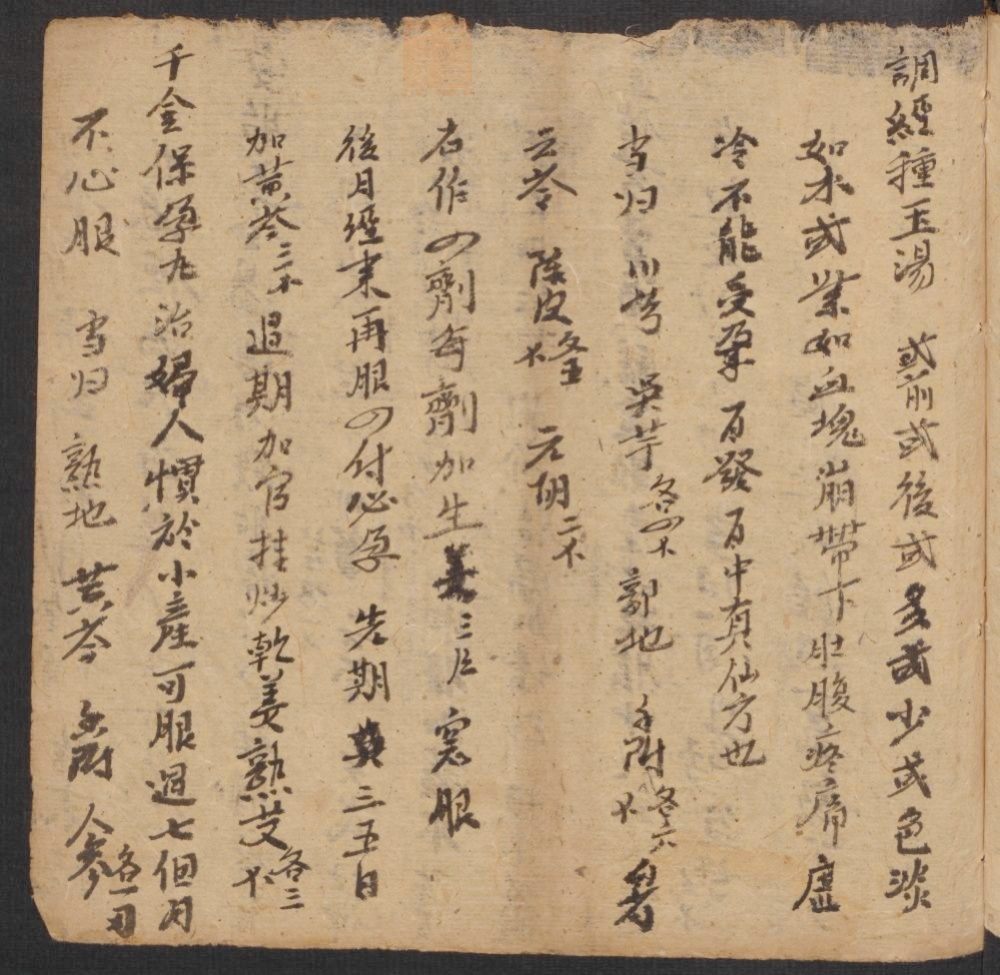 調經種玉湯 或前或後或多或少或色淡
如水或紫如血塊崩帶下肚腹疼痛虛
冷不能受孕百發百中真仙方也
当归 川芎 吳芋各四𠆤 熟地 香附各六
云苓 陳皮各三 元胡二𠆤
右作四劑每劑加生姜三片 窩服
後月經来再服四付必孕 先期 三五日
加黃芩三𠆤過期加官桂炒乾姜熟艾各三
千金保孕丸治婦人慣於小產可服過七個月
不必服 当归 熟地 黄芩 香附 人參各一